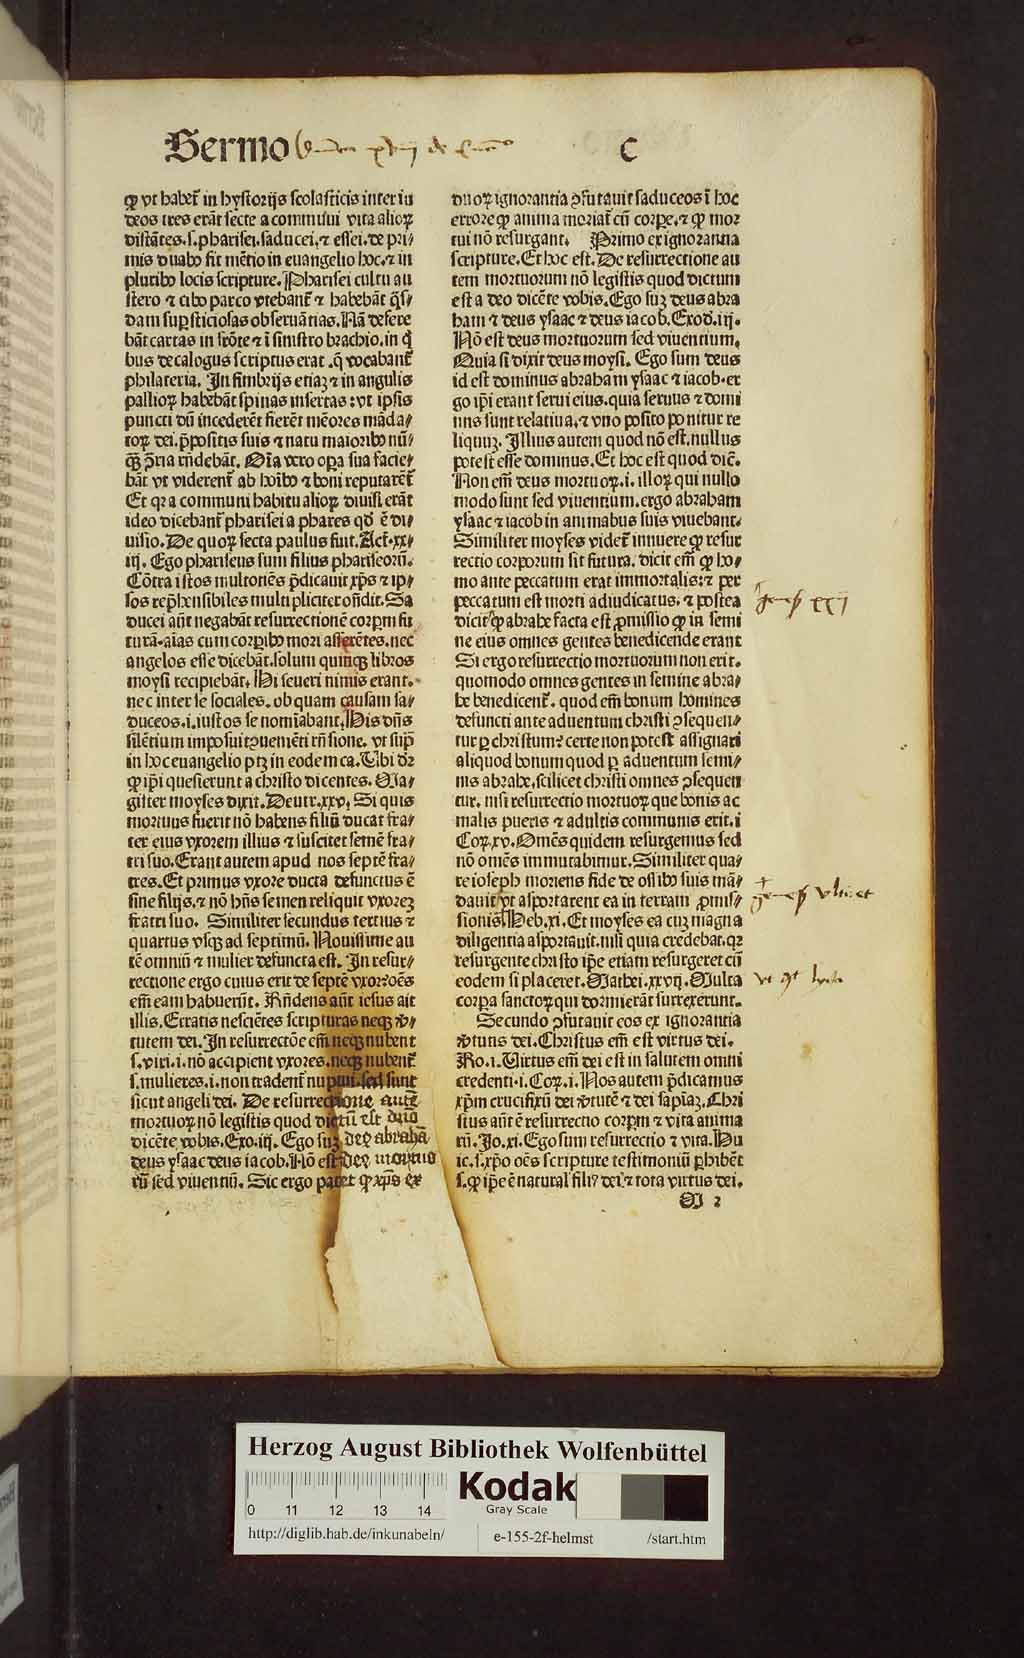 Sermo C
ꝙ vt habet᷑ in hystorijs scolasticis inter iu
deos tres erãt secte a commũi vita alioꝝ
distãtes.s.pharisei.saducei.⁊ essei.de pri⸗
mis duabꝰ fit mẽtio in euangelio hoc.⁊ in
pluribꝰ locis scripture. Pharisei cultu au
stero ⁊ cibo parco vtebant᷑ ⁊ habebãt q̃s⸗
dam suꝑsticiosas obseruãtias. Nã defere
bãt cartas in frõte ⁊ ĩ sinistro brachio.in q̃
bus decalogus scriptus erat .q̃ vocabant᷑
philateria. In fimbrijs etiaꝫ ⁊ in angulis
pallioꝝ habebãt spinas insertas: vt ipsis
puncti dũ incederẽt fierẽt mẽores mãda⸗
toꝝ dei.p̃positis suis ⁊ natu maioribꝰ nũ⸗
q̃ꝫ p̃ria rñdebãt. Oĩa vero oꝑa sua facie⸗
bãt vt viderent᷑ ab hoĩbꝰ ⁊ boni reputarẽt᷑
Et qꝛ a communi habitu alioꝝ diuisi erãt
ideo dicebant᷑ pharisei a phares qđ ẽ di⸗
uisio. De quoꝝ secta paulus fuit. Act̃.xx⸗
iij. Ego phariseus sum filius phariseoꝝ̃.
Cõtra istos multociẽs p̃dicauit xp̃s ⁊ ip⸗
sos rep̃hensibiles multipliciter oñdit. Sa
ducei aũt negabãt resurrectionẽ corpꝝm fu
turã.aĩas cum corꝑibꝰ mori asserẽtes.nec
angelos esse dicebãt.solum quinqꝫ libros
moysi recipiebãt. Hi seueri nimis erant.
nec inter se sociales. ob quam causam sa⸗
duceos.i.iustos se nomĩabant. His dñs
silẽtium imposuit ꝯuemẽti rñsione. vt sup̃
in hoc euangelio ptꝫ in eodem ca. Vbi dꝛ
ꝙ ip̃i quesierunt a christo dicentes. Ma⸗
gister moyses dixit. Deutr.xxv. Si quis
mortuus fuerit nõ habens filiũ ducat fra⸗
ter eius vxorem illius ⁊ suscitet semẽ fra⸗
tri suo. Erant autem apud nos septẽ fra⸗
tres. Et primus vxore ducta defunctus ẽ
sine filijs.⁊ nõ hñs semen reliquit vxoreꝫ
fratri suo. Similiter secundus tertius ⁊
quartus vsqꝫ ad septimũ. Nouissime au
tẽ omniũ ⁊ mulier defuncta est. In resur⸗
rectione ergo cuius erit de septẽ vxor?oẽs
em̃ eam habuerũt. Rñdens aũt iesus ait
illis. Erratis nesciẽtes scripturas neqꝫ v̾⸗
tutem dei. In resurrectõe em̃ neqꝫ nubent
s.viri.i.nõ accipient vxores.neqꝫ nubent᷑
s.mulieres.i.non tradent᷑ nuptui.sed sunt
sicut angeli dei. De resurrectione autẽ
mortuoꝝ nõ legistis quod dictũ est a deo
dicẽte vobis. Exo.iij. Ego suꝫ deꝰ abrahã
deus ysaac deus iacob. Nõ est deꝰ mortuo
rũ sed viuentiũ. Sic ergo patet ꝙ xp̃s ex
duoꝝ ignorantia ꝯfutauit saduceos ĩ hoc
errore ꝙ anima moriat᷑ cũ corꝑe.⁊ ꝙ mor
tui nõ resurgant. Primo ex ignorantia
scripture. Et hoc est. De resurrectione au
tem mortuorum nõ legistis quod dictum
est a deo dicẽte vobis. Ego suꝫ deus abra
ham ⁊ deus ysaac ⁊ deus iacob. Exod.iij.
Nõ est deus mortuorum sed viuentium.
Quia si dixit deus moysi. Ego sum deus
id est dominus abraham ysaac ⁊ iacob.er
go ip̃i erant serui eius.quia seruus ⁊ domi
nus sunt relatiua.⁊ vno posito ponitur re
liquuꝫ. Illius autem quod nõ est.nullus
potest esse dominus. Et hoc est quod dic̃.
Non em̃ deus mortuoꝝ.i.illoꝝ qui nullo
modo sunt sed viuentium.ergo abraham
ysaac ⁊ iacob in animabus suis viuebant.
Similiter moyses videt᷑ innuere ꝙ resur
rectio corporum sit futura. dicit em̃ ꝙ ho⸗
mo ante peccatum erat immortalis:⁊ per
peccatum est morti adiudicatus.⁊ postea
dicit ꝙ abrahe facta est ꝓmissio ꝙ in semi
ne eius omnes gentes benedicende erant
Si ergo resurrectio mortuorum non erit.
quomodo omnes gentes in semine abra⸗
he benedicent᷑. quod em̃ bonum homines
defuncti ante aduentum christi ꝯsequen⸗
tur ꝑ christum? certe non potest assignari
aliquod bonum quod ꝑ aduentum semi⸗
nis abrahe.scilicet christi omnes ꝯsequen
tur. nisi resurrectio mortuoꝝ que bonis ac
malis pueris ⁊ adultis communis erit.i
Coꝝ.xv. Omẽs quidem resurgemus sed
nõ omẽs immutabimur. Similiter qua⸗
re ioseph moriens fide de ossibꝰ suis mã⸗
dauit vt asportarent ea in terram ꝓmis⸗
sionis. Heb.xi. Et moyses ea cuꝫ magna
diligentia asportauit.nisi quia credebat.qꝛ
resurgente christo ip̃e etiam resurgeret cũ
eodem si placeret. Mathei.xxvij. Multa
corꝑa sanctoꝝ qui dormierãt surrexerunt.
Secundo ꝯfutauit eos ex ignorantia
v̾tutis dei. Christus em̃ est virtus dei.
Ro.i. Virtus em̃ dei est in salutem omni
credenti.i.Coꝝ.i. Nos autem p̃dicamus
xp̃m crucifixũ dei v̾tutẽ ⁊ dei sapiaꝫ. Chri
stus aũt ẽ resurrectio corpꝝm ⁊ vita anima
rũ. Jo.xi. Ego sum resurrectio ⁊ vita. Hu
ic.s.xp̃o oẽs scripture testimoniũ ꝑhibẽt
s.ꝙ ip̃e ẽ natural᷑ filiꝰ dei.⁊ tota virtus dei.
M 2
genes XXII
genes vlti
Herzog August Bibliothek Wolfenbüttel
Kodak
Gray Scale
0 11 12 13 14
http://diglib.hab.de/inkunabeln/ e-155-2f-helmst /start.htm